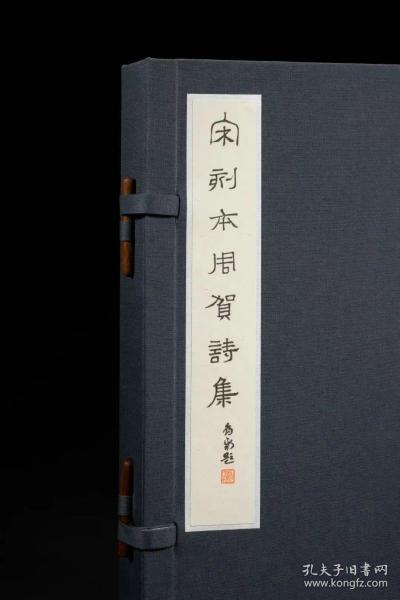 宋刻本周賀詩集
孔夫子旧书网
www.kongfz.com